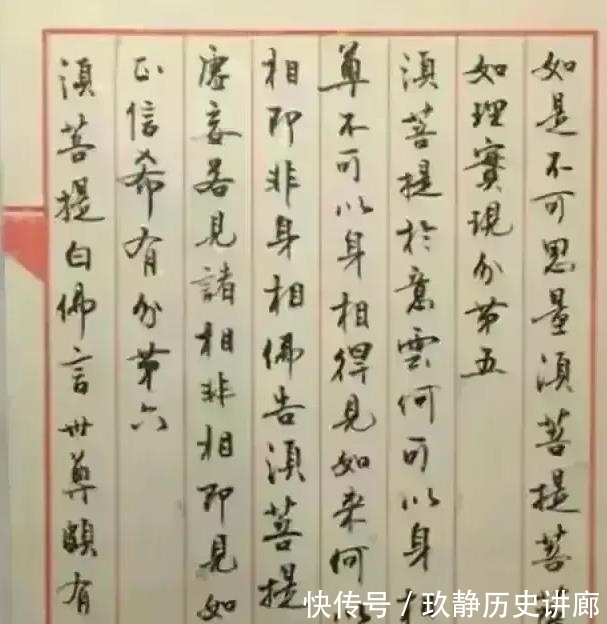 如是不可思量須菩提菩
如理實現分第五
須菩提於意雲何可以身相
尊不可以身相得見如来何以
相即非身相佛告須菩提
虛妄若見諸相非相即見如
正信希有分第六
須菩提白佛言世尊頗有
快传号 / 玖静历史讲廊